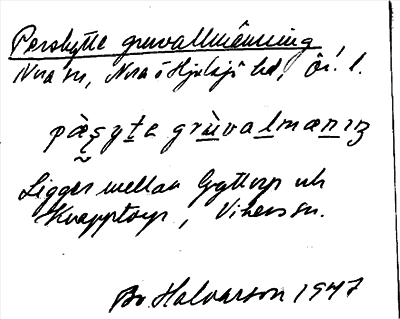 Pershytte gruvallmänning
Nora sn, Nora o Hjulsjö hd, Ör. l.
pæ̀ṣyta grùvalmænıŋ
Ligger mellan Gyttorp och
Knapptorp, Vikers sn.
Bo Halvarson 1947